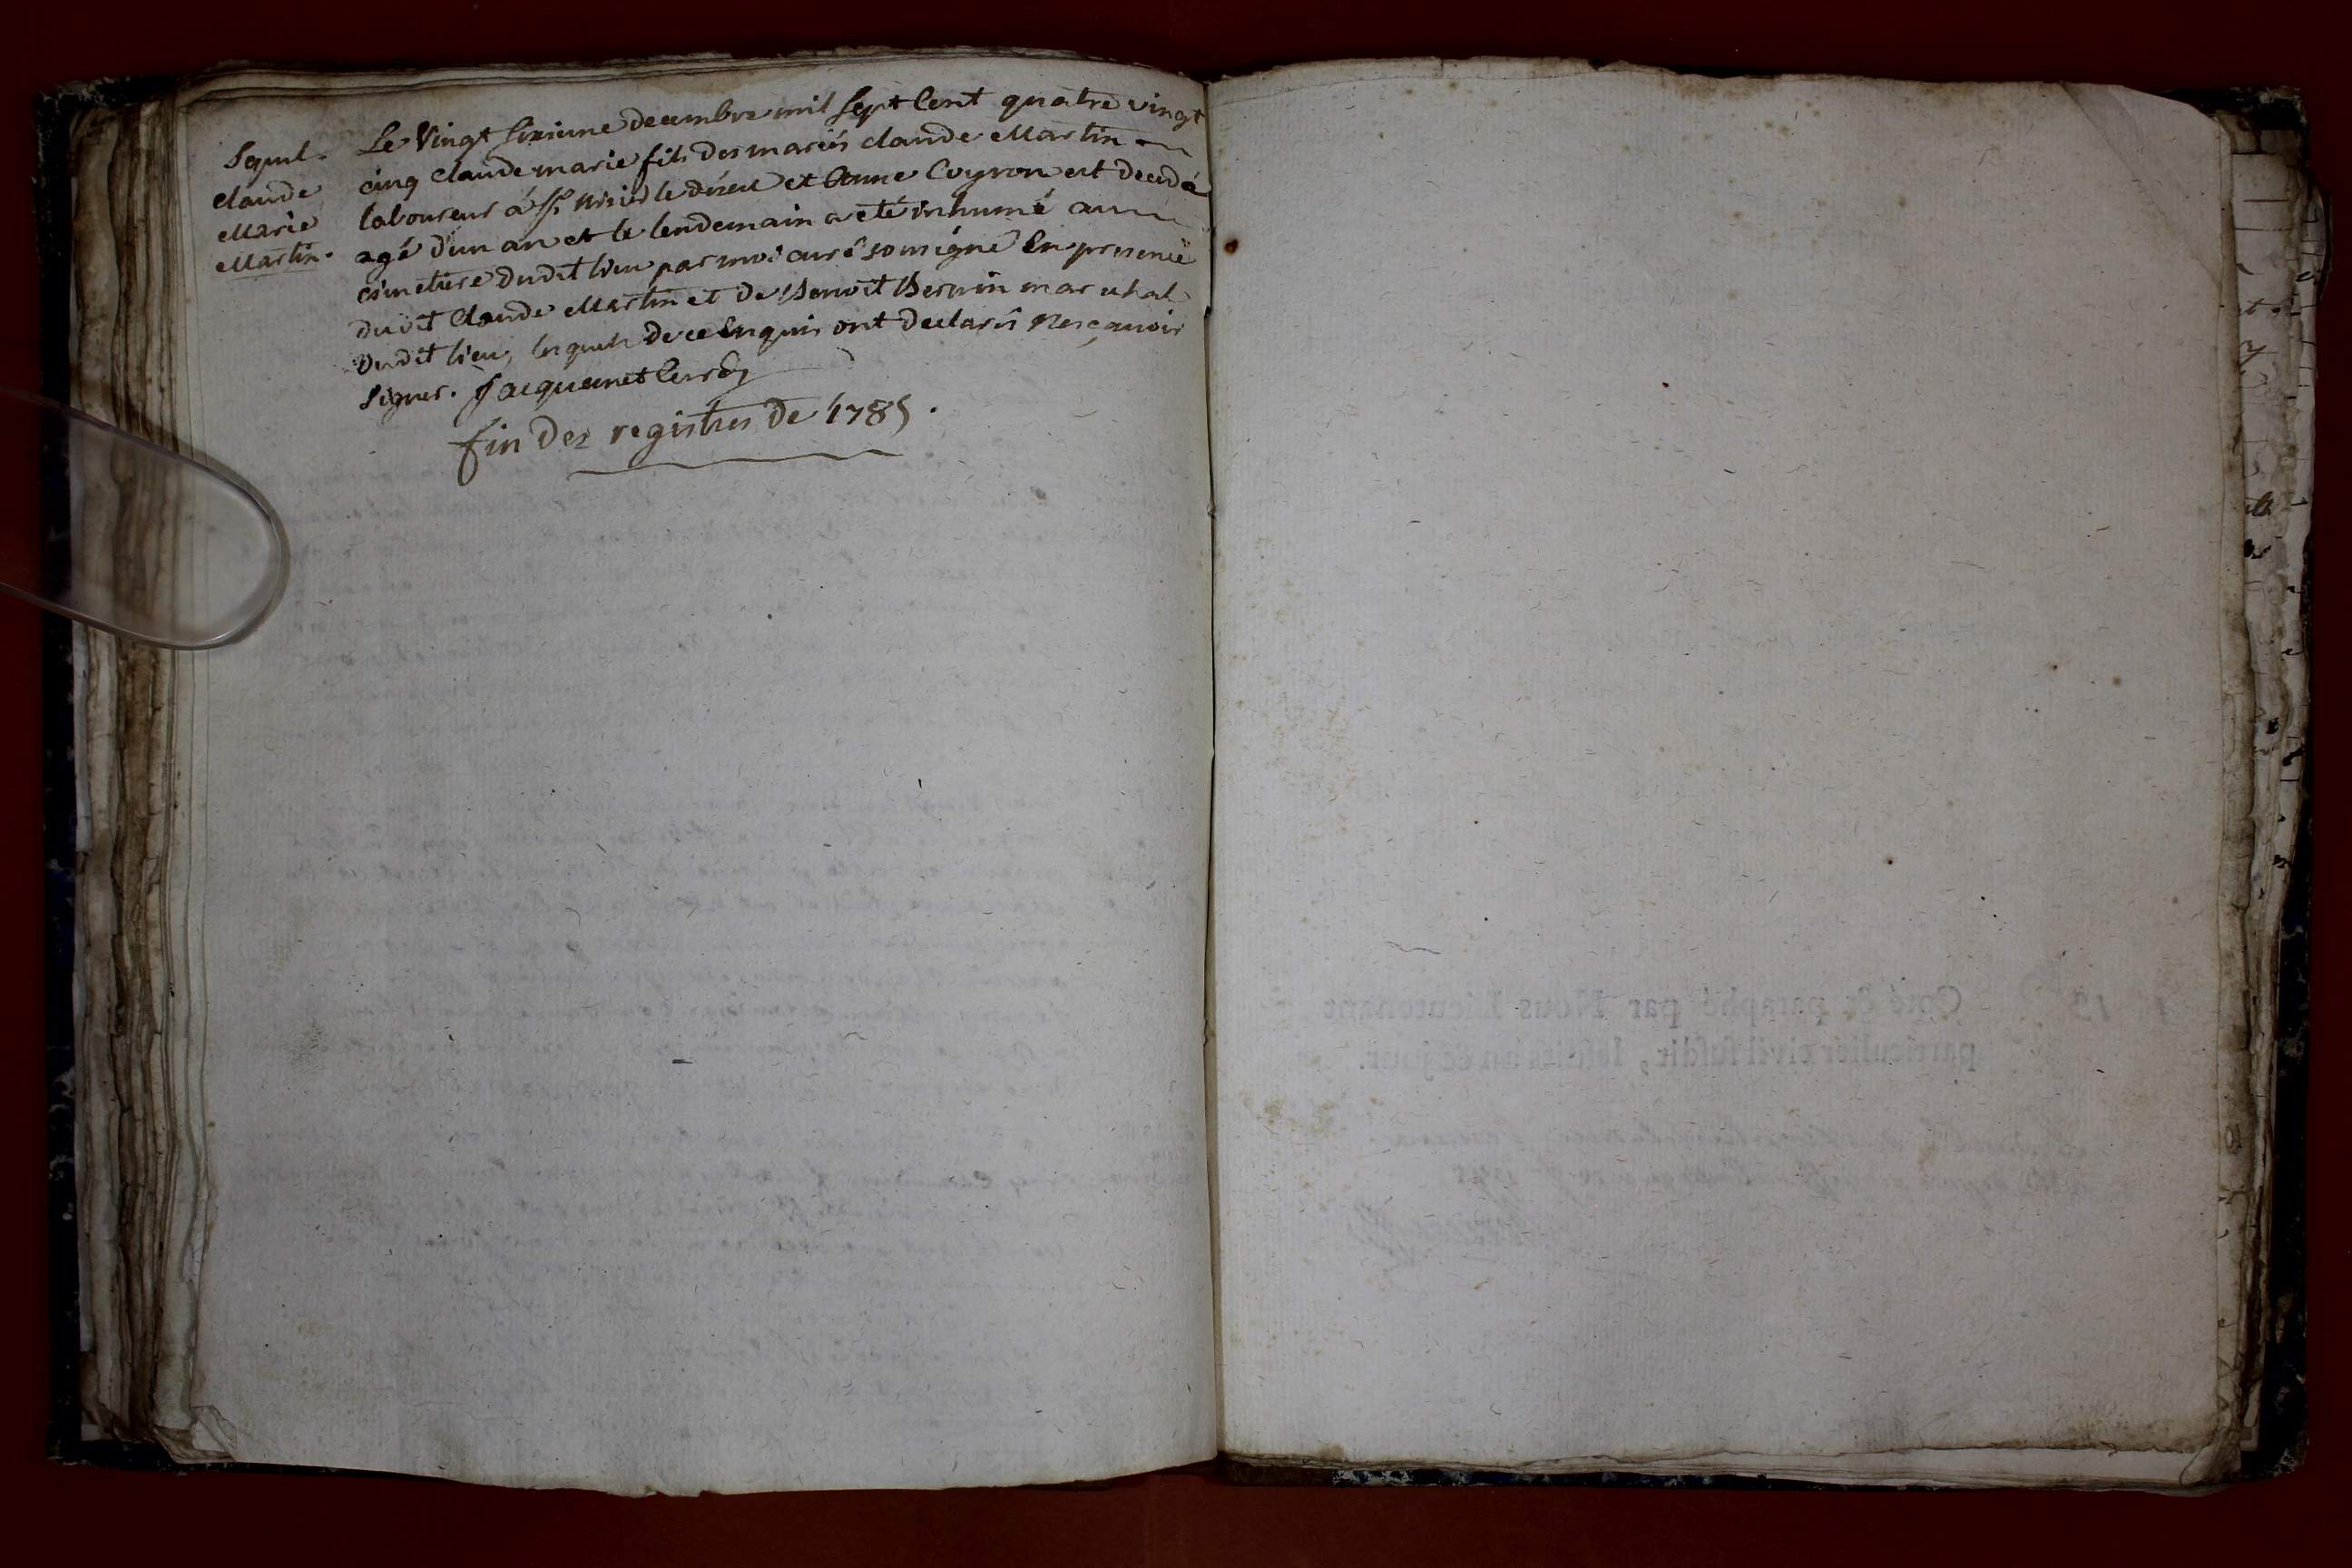 Sepul.
claude
Marie
Martin.
Le vingt sixieme decembre mil sept cent quatre vingt
cinq claude marie fils des mariés claude Martin
laboureur à st le désert et Anne Coyron est decedé
agé d'un an et le lendemain a eté inhumé au
cimetiere dudit lieu par moi curé soussigné En presence
dudit Claude Martin et de Benoit marechal
dudit lieu, lesquels de ce Enquis ont declarés ne sçavoir
signer. Jacquemet Curé
fin des registres de 1785.
Coté & paraphé par Nous Lieutenant
particulier civil susdit, lesdits an & jour.